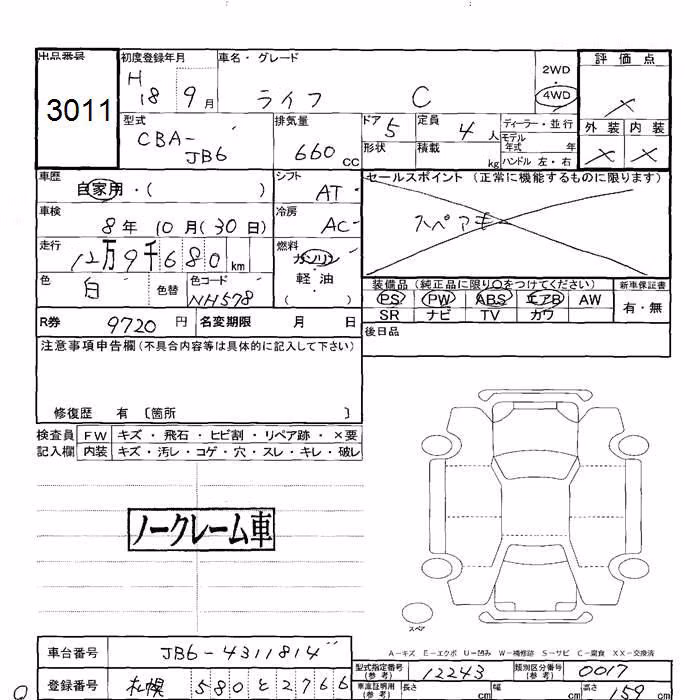 出品番号 初度登録年月 車名・グレード 評価点
3011 H 18 9月 ライフ C 2WD 4WD ×
外装 内装
型式 排気量 ドア 定員 ディーラー・並行
CBA- JB6 660 CC 5 4人 モデル年式 年 × ×
形状 積載 kg ハンドル 左・右
車歴 シフト セールスポイント (正常に機能するものに限ります)
自家用・( ) AT
車検 冷房 スペアキー
8年 10月(30日) AC
走行 燃料
12万9千680km ガソリン
色 色替 色コード 軽油
白 NH578 ( )
装備品 (純正品に限り○をつけてください) 新車保証書
PS PW ABS エアB AW 有・無
SR ナビ TV カワ
R券 9720円 名変期限 月 日 後日品
注意事項申告欄(不具合内容等は具体的に記入して下さい)
修復歴 有 〔箇所 〕
検査員 FW キズ・飛石・ヒビ割・リペア跡・×要
記入欄 内装 キズ・汚レ・コゲ・穴・スレ・キレ・破レ
ノークレーム車
スペア
A-キズ E-エクボ U-凹み W-補修跡 S-サビ C-腐食 XX-交換済
車台番号 JB6-4311814 型式指定番号(参考) 12243 類別区分番号(参考) 0017
登録番号 札幌 580 と 2766 車庫証明用(参考) 長さ cm 幅 cm 高さ 159 cm